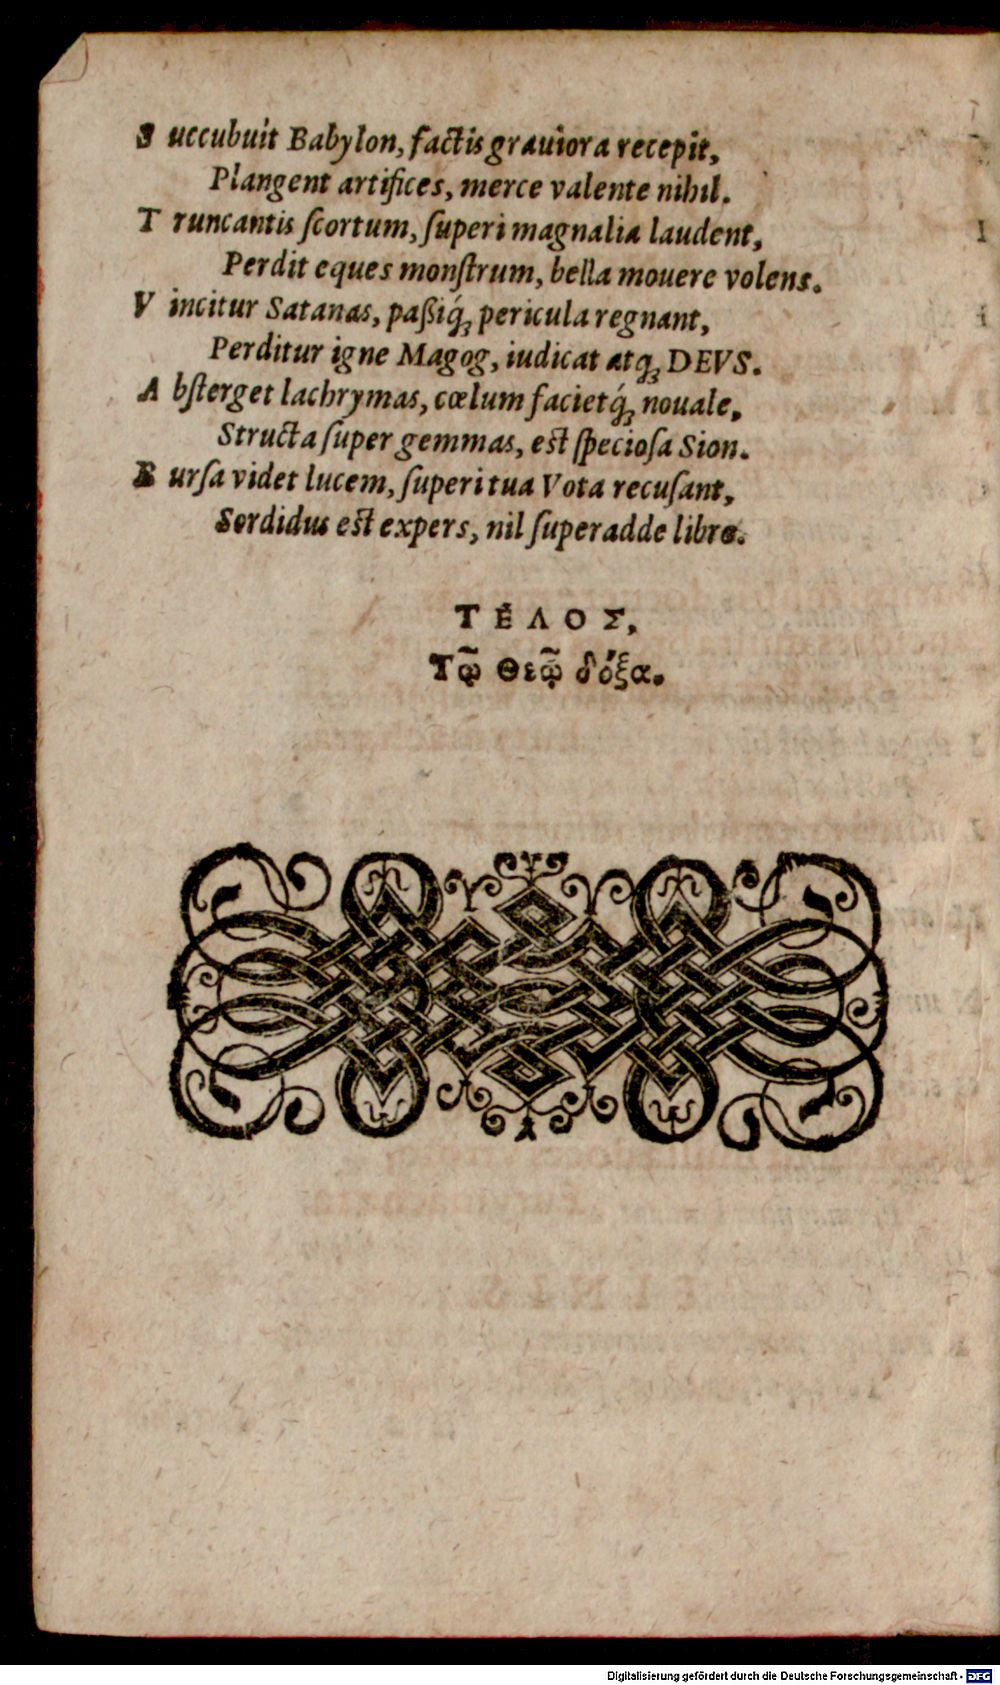 S uccubuit Babylon, factis grauiora recepit,
Plangent artifices, merce valente nihil.
T runcantis ſcortum, ſuperi magnalia laudent,
Perdit eques monſtrum, bella mouere volens.
V incitur Satanas, paßiq́ꝫ pericula regnant,
Perditur igne Magog, iudicat atqꝫ DEVS.
A bſterget lachrymas, cœlum facietq́ꝫ nouale,
Structa ſuper gemmas, est ſpecioſa Sion.
R urſa videt lucem, ſuperi tua Vota recuſant,
Sordidus est expers, nil ſuperadde libro.
ΤΈΛΟΣ,
Τῷ Θεῷ δόξα.
Digitalisierung gefördert durch die Deutsche Forschungsgemeinschaft - DFG